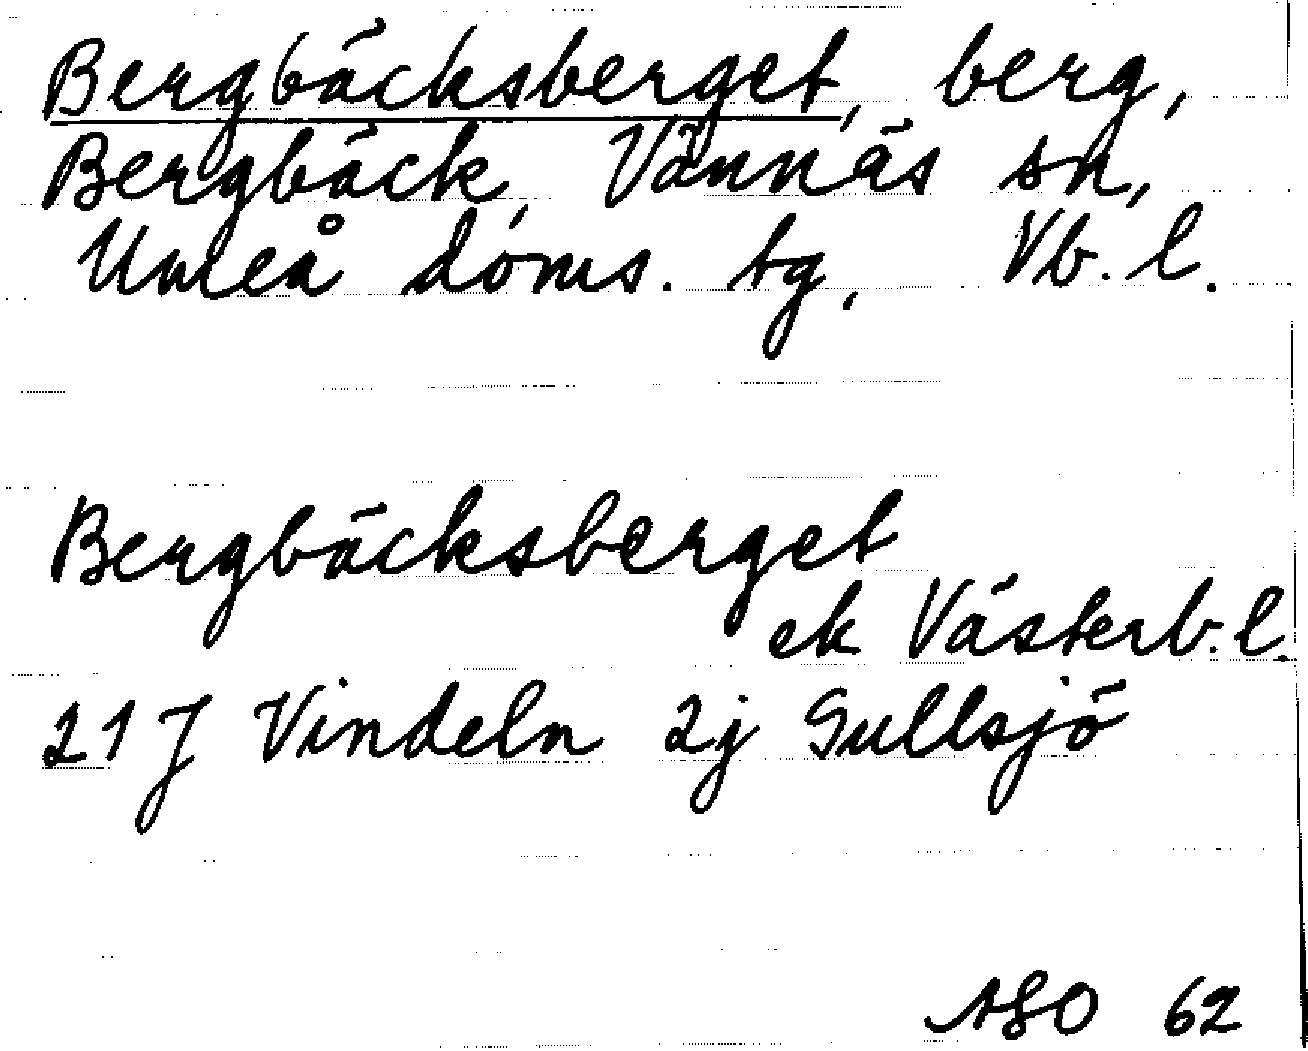 Bergbäcksberget, berg,
Bergbäck, Vännäs sn,
Umeå doms. tg, Vb. l.
Bergbäcksberget
ek Västerb. l.
21 J Vindeln 2j Gullsjö
ASO 62